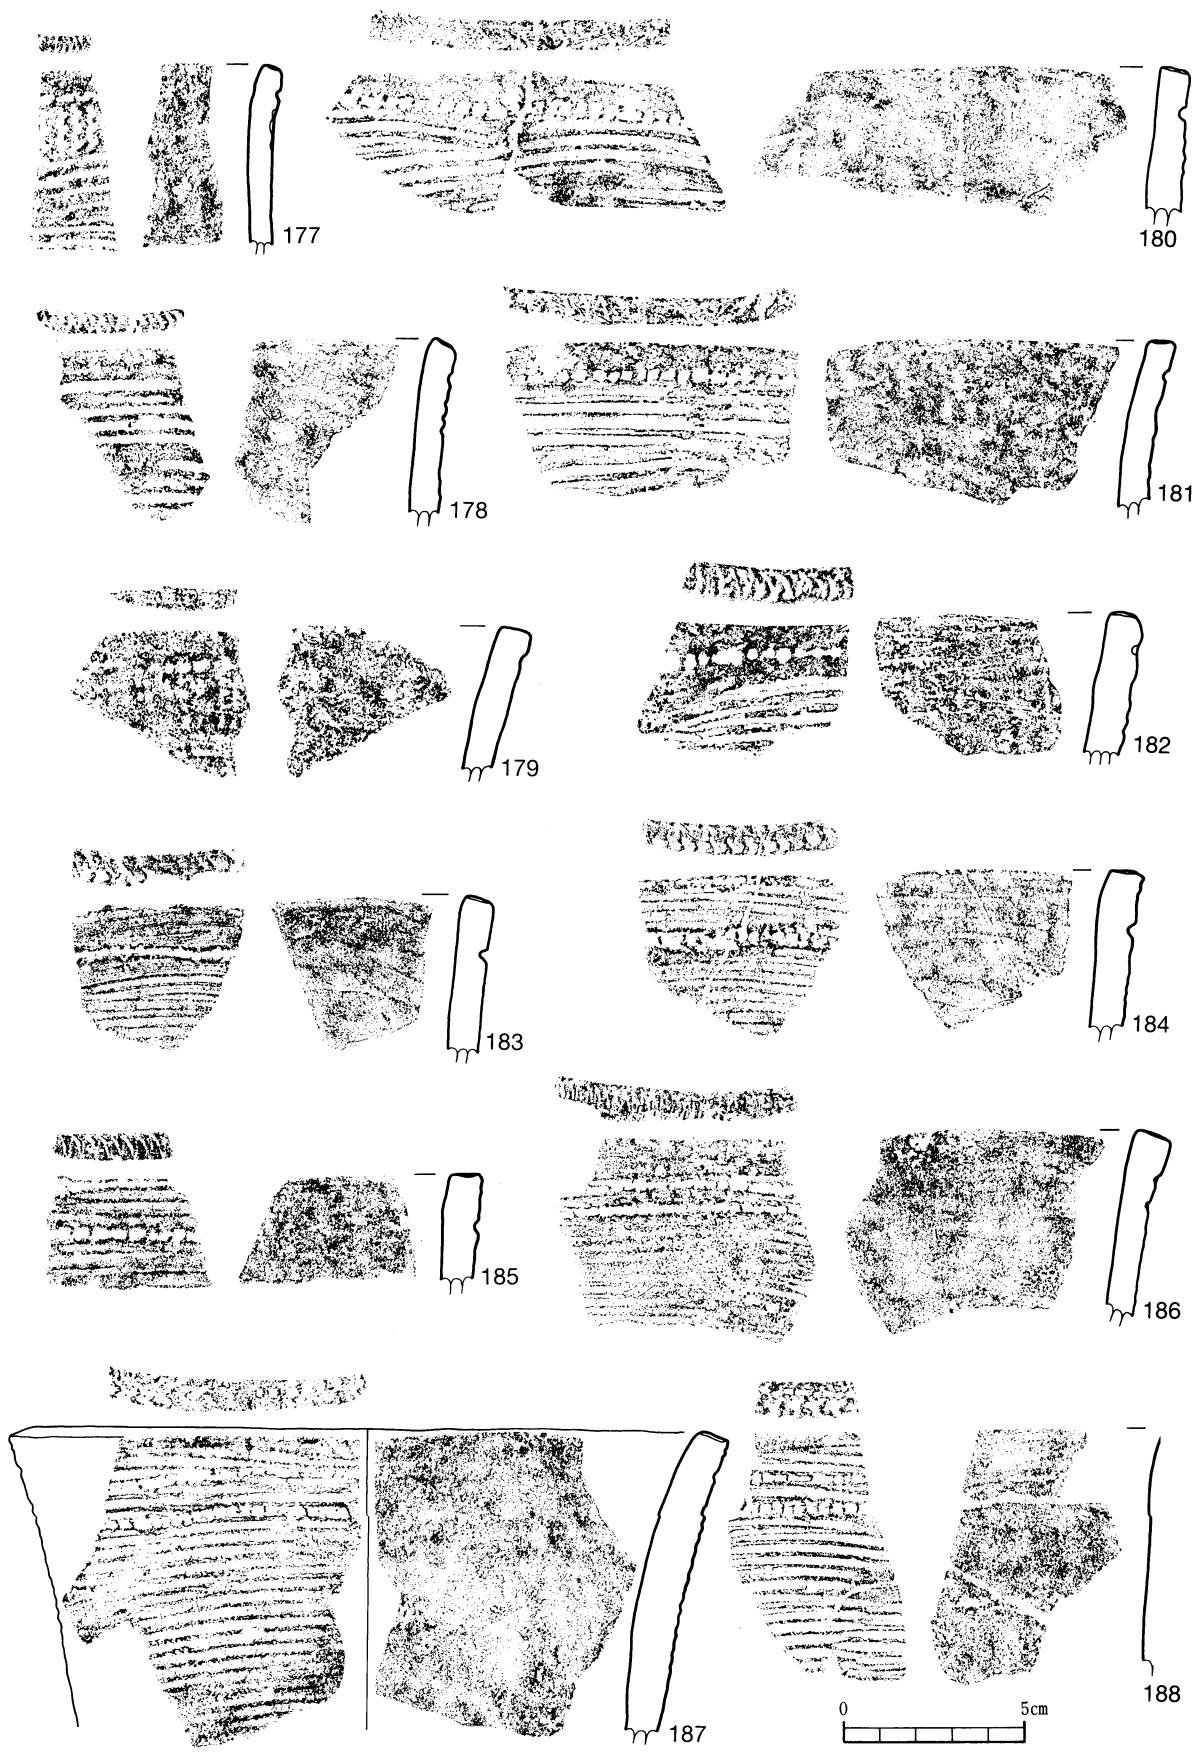 177
180
178
181
179
182
183
184
185
186
187
188
0 5cm